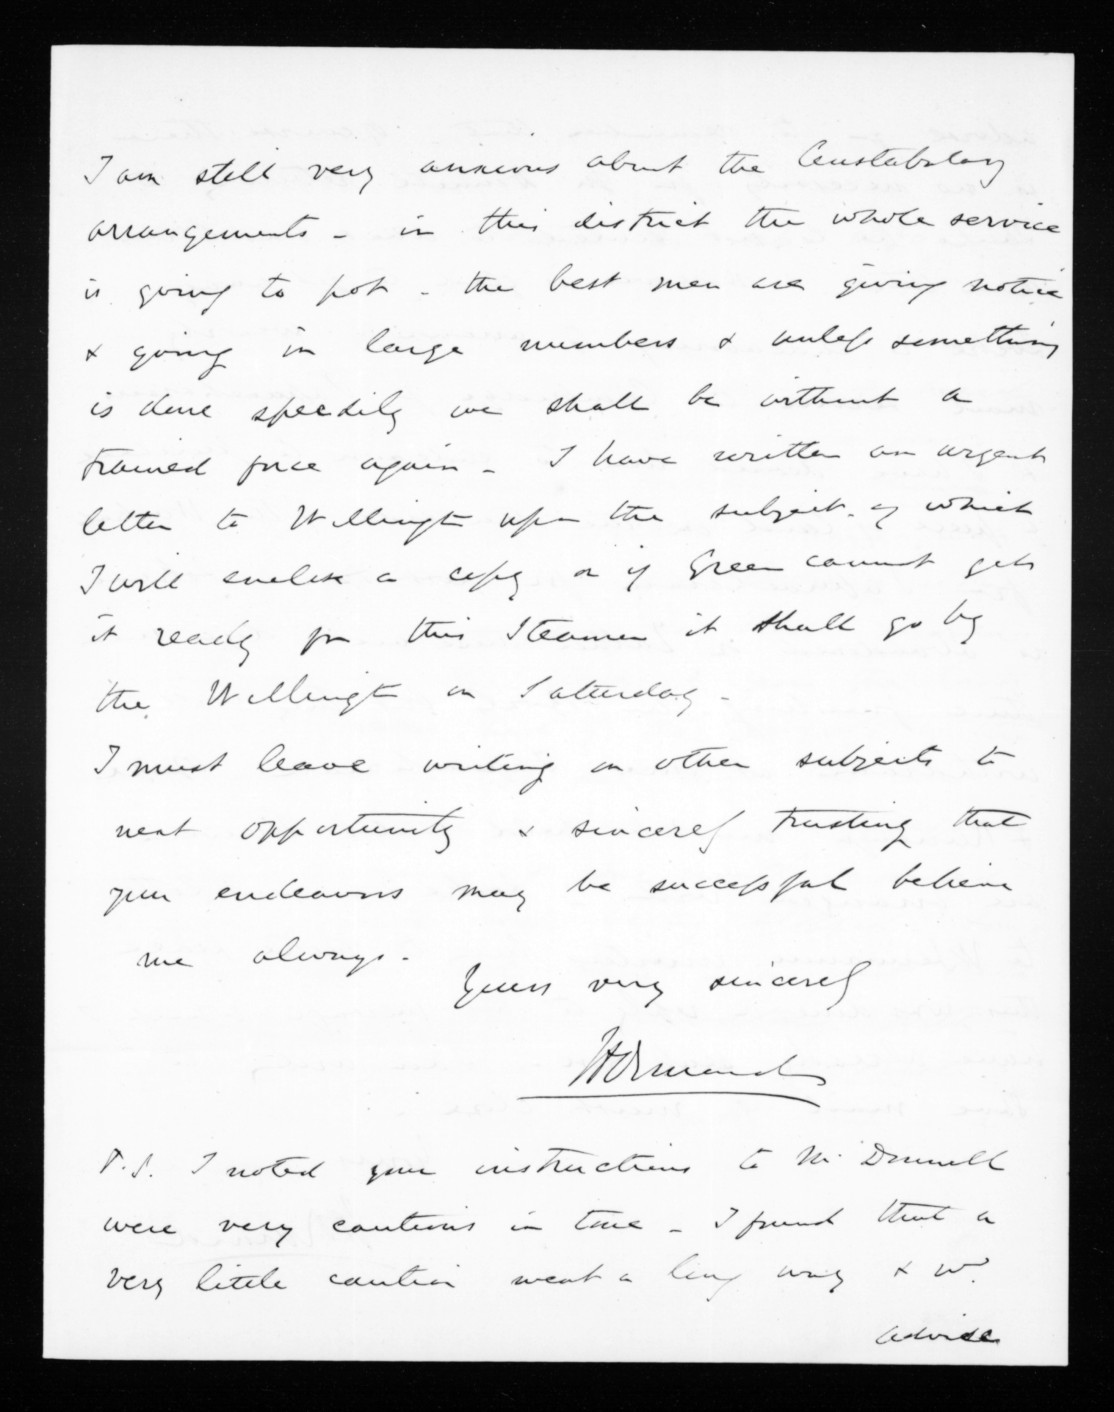 I am still very anxious about the Constabulary
arrangements - in this district the whole service
is going to pot - the best men are giving notice
& going in large numbers & unless something
is done speedily we shall be without a
trained force again - I have written an urgent
letter to Wellington upon the subject of which
I will enclose a copy or if Green cannot get
it ready for this Steamer it shall go by
the Wellington on Saturday -
I must leave writing on other subjects to
next opportunity & sincerely trusting that
your endeavors may be successful believe
me always -
Yours very sincerely
JD Ormond
P.S. I noted your instructions to McDonnell
were very cautious in tone - I found that a
very little caution went a long way & wd.
advise